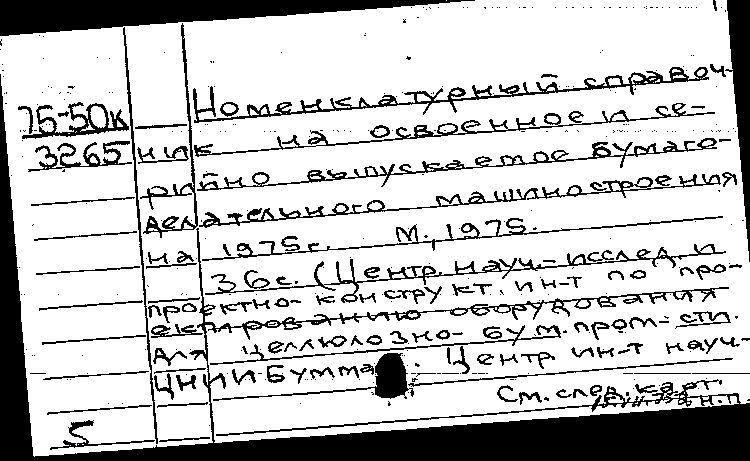 75-50к
3265
Номенклатурный справоч-
ник на освоенное и се-
рийно выпускаемое бумаго-
делательного машиностроения
на 1975г. М., 1975.
36с. (Центр. науч.-исслед. и
проектно-конструкт. ин-т по про-
ектированию оборудования
для целлюлозно-бум. пром-сти.
ЦНИИБумма . Центр ин-т науч-
См. след. карт.
5